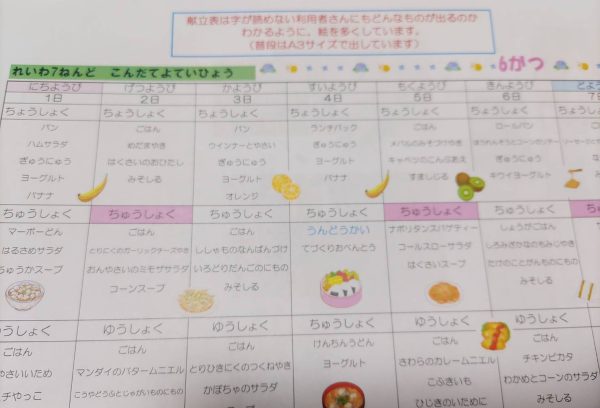 献立表は字が読めない利用者さんにもどんなものが出るのか
わかるように、絵を多くしています。
（普段はA3サイズで出しています）
れいわ7ねんど　こんだてよていひょう
6がつ
にちようび げつようび かようび すいようび もくようび きんようび
1日 2日 3日 4日 5日 6日
ちょうしょく ちょうしょく ちょうしょく ちょうしょく ちょうしょく ちょうしょく
パン ごはん パン ランチパック ごはん ロールパン
ハムサラダ めだまやき ウインナーとやさい ぎゅうにゅう メバルのみそづけやき ほうれんそうとコーンのソテー
ぎゅうにゅう はくさいのおひたし ぎゅうにゅう ヨーグルト キャベツのこんぶあえ ぎゅうにゅう
ヨーグルト みそしる ヨーグルト バナナ すましじる キウイヨーグルト
バナナ オレンジ
ちゅうしょく ちゅうしょく ちゅうしょく ちゅうしょく ちゅうしょく ちゅうしょく
マーボーどん ごはん ごはん うんどうかい ナポリタンスパゲティー しょうがごはん
はるさめサラダ とりにくのガーリックチーズやき ししゃものなんばんづけ てづくりおべんとう コールスローサラダ しろみざかなのもみじやき
ちゅうかスープ おんやさいのミモザサラダ いろどりだんごのにもの はくさいスープ たけのことがんものにもの
コーンスープ みそしる みそしる
ゆうしょく ゆうしょく ゆうしょく ちゅうしょく ゆうしょく ゆうしょく
ごはん ごはん ごはん けんちんうどん ごはん ごはん
やさいいため マンダイのバタームニエル とりひきにくのつくねやき ヨーグルト さわらのカレームニエル チキンピカタ
チやっこ こうやどうふとじゃがいものにもの かぼちゃのサラダ こふきいも わかめとコーンのサラダ
みそしる ひじきのいために みそしる